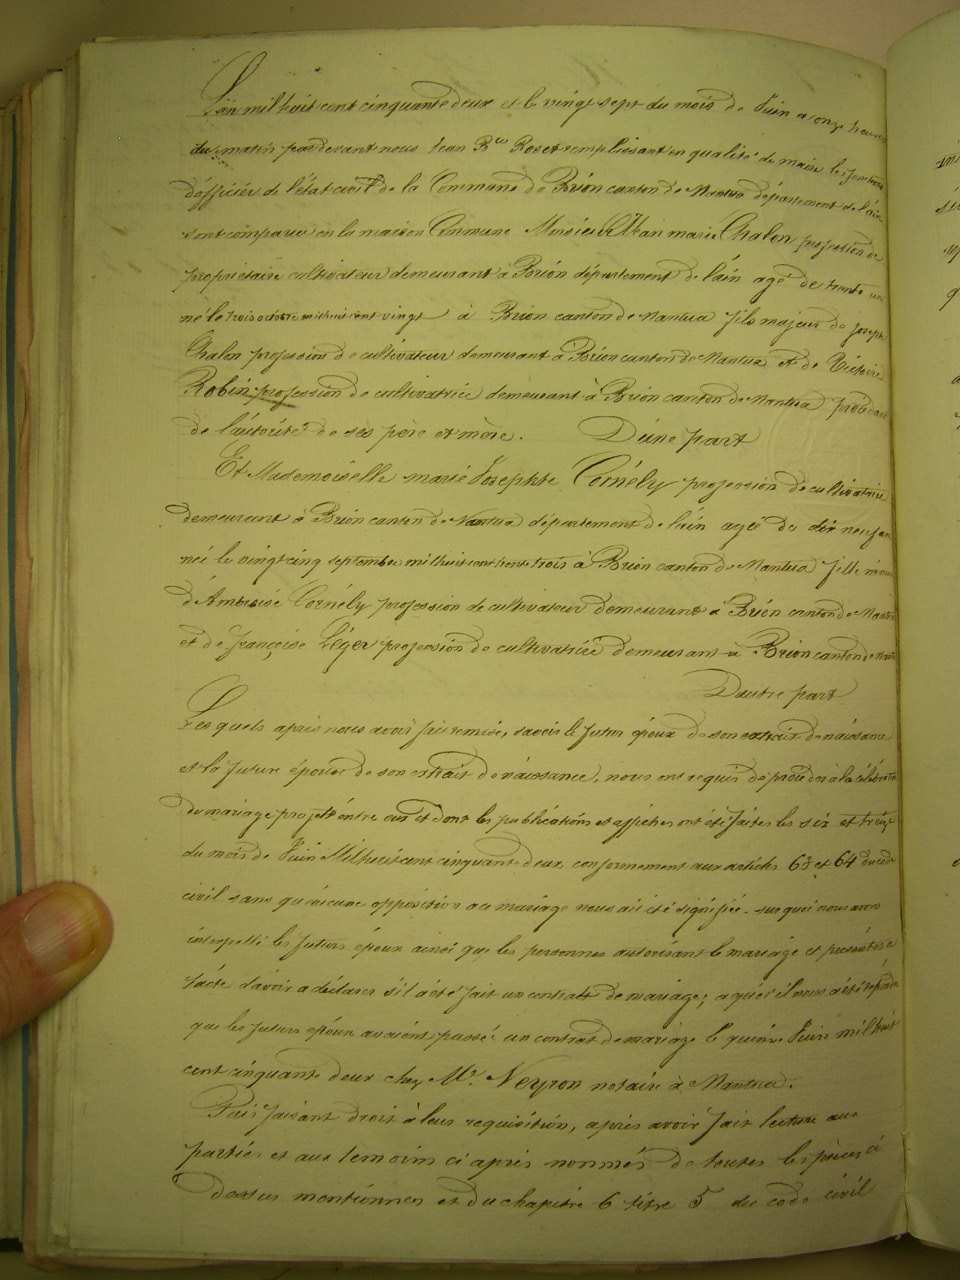 L'an mil huit cent cinquante deux et le vingt sept du mois de Juin a onze heures
du matin pardevant nous Jean B.te Roset remplissant en qualité de maire les fonctions
d'officier de l'état civil de la Commune de Brion canton de Nantua département de l'ain
sont comparus en la maison Commune Monsieur Alban marie Chalon profession de
propriétaire cultivateur demeurant à Brion département de l'ain agé de trente un
né le trois octobre mil huit cent vingt à Brion canton de Nantua fils majeur de Joseph
Chalon profession de cultivateur demeurant à Brion canton de Nantua et de Victoire
Robin profession de cultivatrice demeurant à Brion canton de Nantua procédant
de l'autorité de ses père et mère. D'une part
Et Mademoiselle marie Josephte Cornély profession de cultivatrice
demeurant à Brion canton de Nantua département de l'ain agée de dix neuf ans
née le vingt cinq septembre mil huit cent trente trois à Brion canton de Nantua fille mineure
d'Ambroise Cornély profession de cultivateur demeurant à Brion canton de Nantua
et de françoise Léger profession de cultivatrice demeurant à Brion canton de Nantua
D'autre part
Les quels après nous avoir fait remise, savoir le futur époux de son extrait de naissance
et la future épouse de son extrait de naissance, nous ont requis de procéder à la célébration
du mariage projeté entre eux et dont les publications et affiches ont été faites les six et treize
du mois de Juin Mil huit cent cinquante deux, conformement aux articles 63 et 64 du code
civil sans qu'aucune opposition au mariage nous ait été signifiée. sur quoi nous avons
interpellé les futurs époux ainsi que les personnes autorisant le mariage et présentes à
l'acte d'avoir a déclarer s'il a été fait un contrat de mariage; a quoi il nous a été répondu
que les futurs époux avaient passé un contrat de mariage le quinze Juin mil huit
cent cinquante deux chez M.r Neyron notaire à Nantua.
Puis faisant droit à leur requisition, après avoir fait lecture aux
parties et aux temoins ci après nommés de toutes les pièces ci
dessus mentionnées et du chapitre 6 titre 5 du code civil